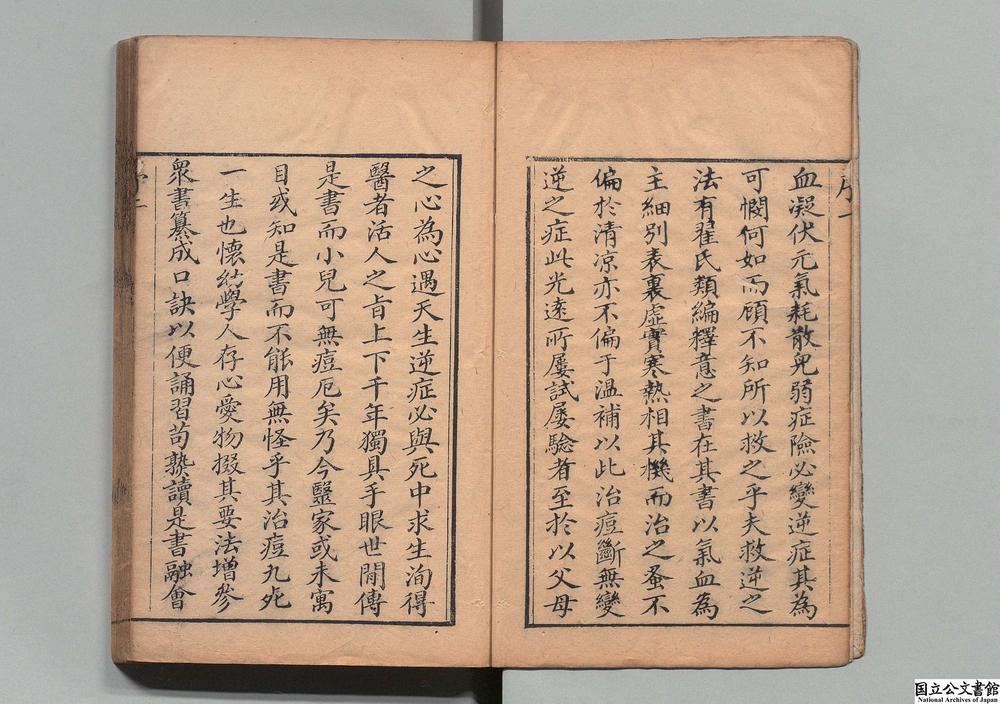 序一
血凝伏元氣耗散兒弱症險必變逆症其為
可憫何如而顧不知所以救之乎夫救逆之
法有翟氏類編釋意之書在其書以氣血為
主細別表裏虛實寒熱相其機而治之蚤不
偏於清凉亦不偏于温補以此治痘斷無變
逆之症此光遠所屢試屢驗者至於以父母
之心為心遇天生逆症必與死中求生洵得
醫者活人之旨上下千年獨具手眼世閒傳
是書而小兒可無痘厄矣乃今醫家或未寓
目或知是書而不能用無怪乎其治痘九死
一生也懷結學人存心愛物掇其要法增參
衆書纂成口訣以便誦習苟熟讀是書融會
国立公文書館
National Archives of Japan